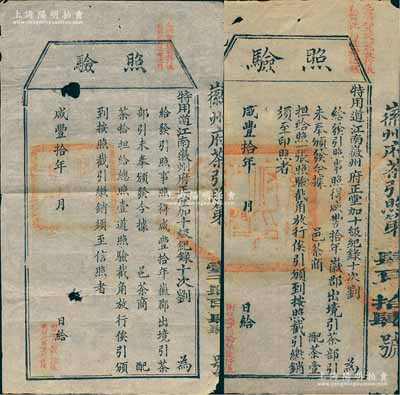 驗照
特用道江南徽州府正堂加十級紀錄十次劉 為
給發引照事照得咸豐拾年徽郡出境引茶
部引未奉頒發合據 邑茶商 配
茶 担給總照壹道照驗截角放行俟引頒
到按照截引繳銷須至信照者
咸豐拾年 月 日給
徽州府茶引照第 號
驗照
特用道江南徽州府正堂加十級紀錄十次劉 為
給發引照事照得咸豐拾年徽郡出境引茶部引
未奉頒發合據 邑茶商 配茶壹
担給照一張照驗截角放行俟引頒到按照截引繳銷
須至印照者
咸豐拾年 月 日給
徽州府茶引照第 肆百 拾肆 號